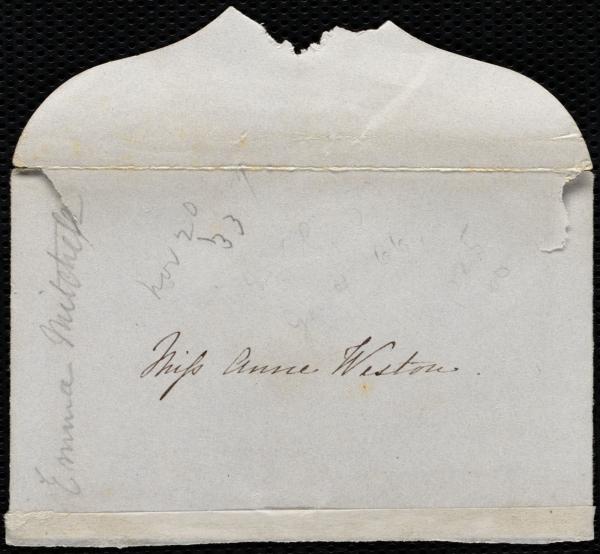 Emma Mitchell
Nov 20
33
Miss Anne Weston.